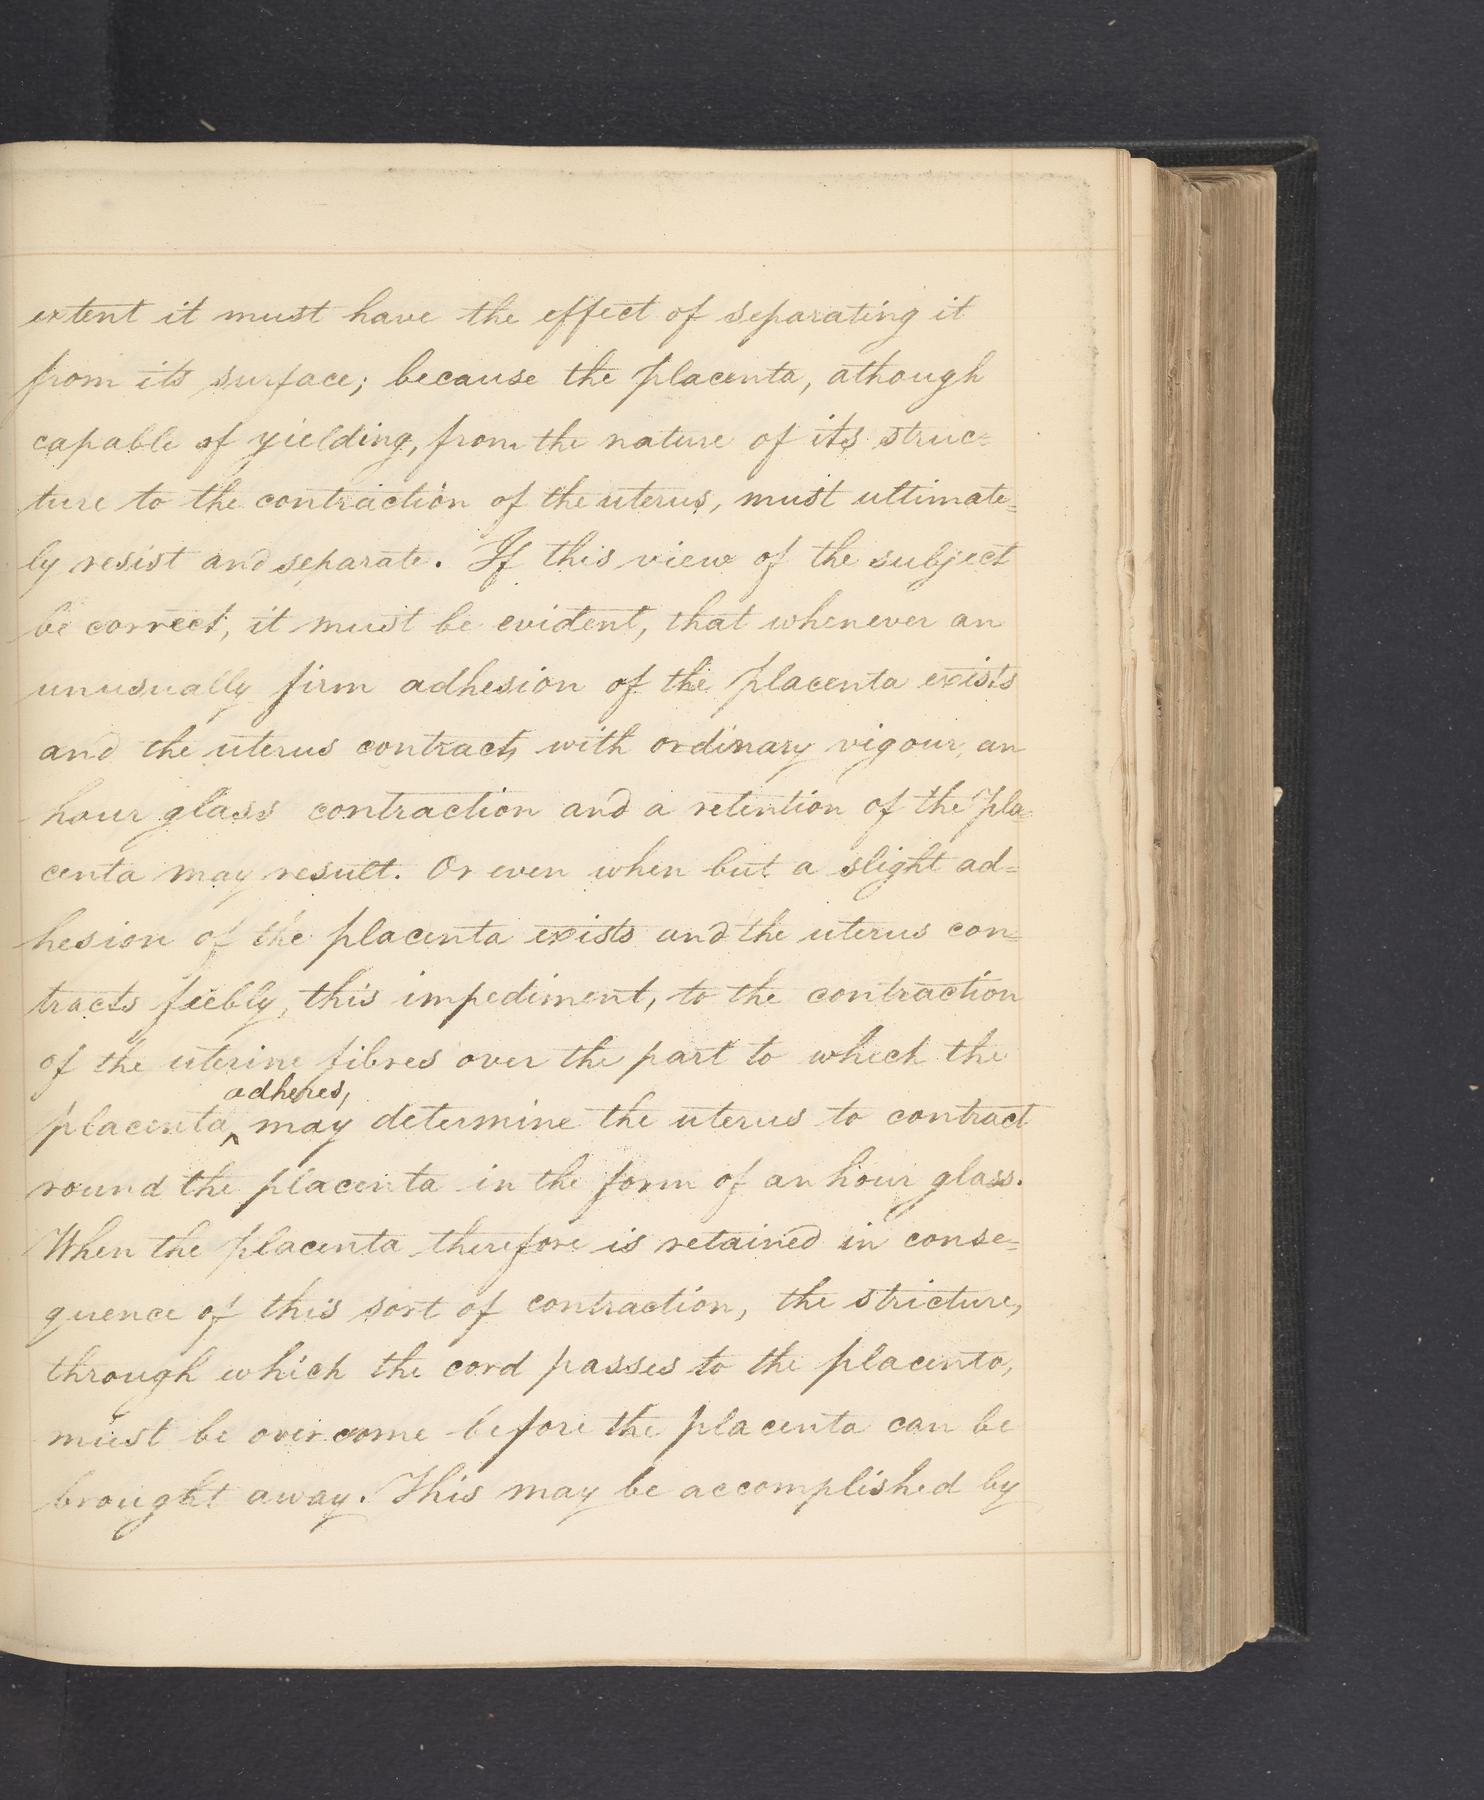 extent it must have the effect of separating it
from its surface; because the placenta, athough
capable of yielding, from the nature of its struc=
ture to the contraction of the uterus, must ultimate=
ly resist and separate. If this view of the subject
be correct, it must be evident, that whenever an
unusually firm adhesion of the placenta exists
and the uterus contracts with ordinary vigour, an
hour glass contraction and a retention of the pla=
centa may result. Or even when but a slight ad=
hesion of the placenta exists and the uterus con=
tracts feebly, this impediment, to the contraction
of the uterine fibres over the part to which the
adheres,
placenta, ^ may determine the uterus to contract
round the placenta in the form of an hour glass.
When the placenta therefore is retained in conse=
quence of this sort of contraction, the stricture,
through which the cord passes to the placenta,
must be overcome before the placenta can be
brought away. This may be accomplished by